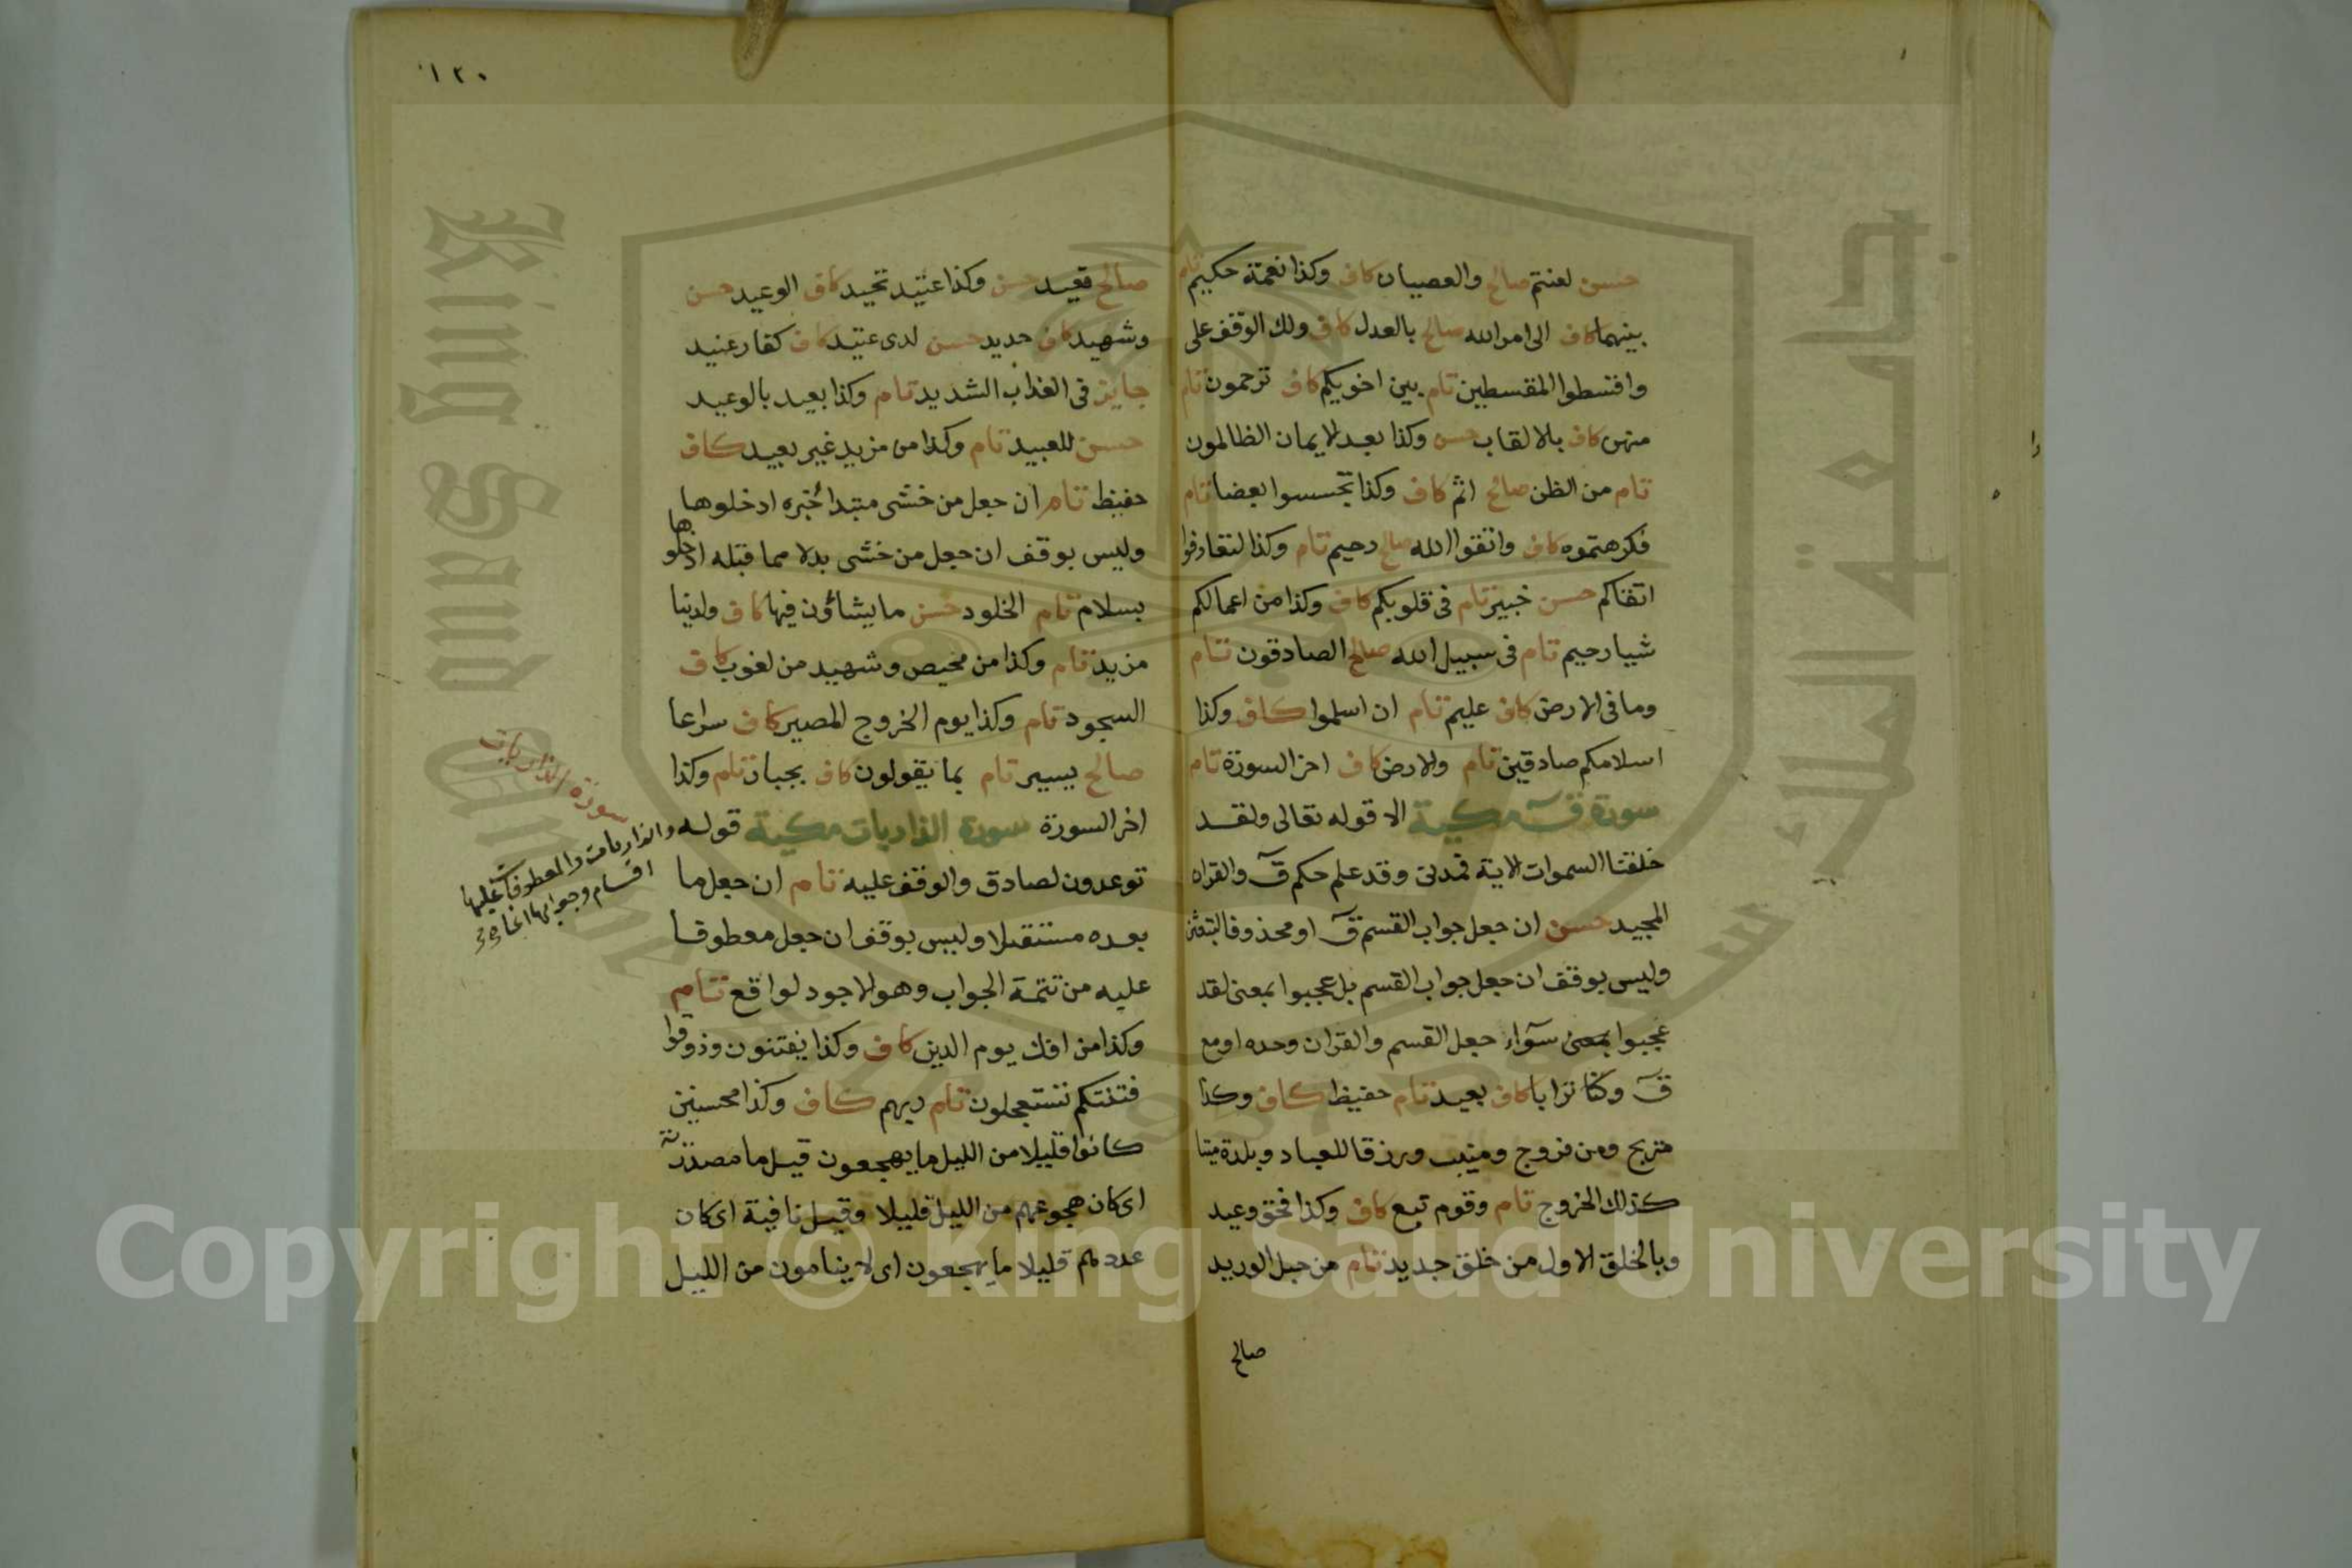 حسن لعنتم صالح والعصيان كاف وكذا نعمة حكيم تام
بينهما كاف الى امر الله صالح بالعدل كاف ولك الوقف على
واقسطوا المقسطين تام بين اخويكم كاف ترحمون تام
منهن كاف بالالقاب حسن وكذا بعد الايمان الظالمون
تام من الظن صالح اثم كاف وكذا تجسسوا بعضا تام
فكرهتموه كاف واتقوا الله صالح رحيم تام وكذا لتعارفوا
اتقاكم حسن خبير تام فى قلوبكم كاف وكذا من اعمالكم
شيا رحيم تام فى سبيل الله صالح الصادقون تام
وما فى الارض كاف عليم تام ان اسلموا كاف وكذا
اسلامكم صادقين تام والارض كاف اخر السورة تام
سورة قٓ مكية الا قوله تعالى ولقد
خلقنا السموات الاية فمدنى وقد علم حكم قٓ والقران
المجيد حسن ان جعل جواب القسم قٓ او محذوفا لتبعثن
وليس بوقف ان جعل جواب القسم بل عجبوا بمعنى لقد
عجبوا بمعنى سوآء جعل القسم والقران وحده او مع
قٓ وكنا ترابا كاف بعيد تام حفيظ كاف وكذا
مريج ومن فروج ومنيب ورزقا للعباد وبلدة ميتا
كذلك الخروج تام وقوم تبع كاف وكذا فحق وعيد
وبالخلق الاول من خلق جديد تام من حبل الوريد
صالح
١٢٠
صالح قعيد حسن وكذا عتيد تحيد كاف الوعيد حسن
وشهيد كاف حديد حسن لدى عتيد كاف كفار عنيد
جايز فى العذاب الشديد تام وكذا بعيد بالوعيد
حسن للعبيد تام وكذا من مزيد غير بعيد كاف
حفيظ تام ان جعل من خشى مبتدا خبره ادخلوها
وليس بوقف ان جعل من خشى بدلا مما قبله ادخلوها
بسلام تام الخلود حسن ما يشاؤن فيها كاف ولدينا
مزيد تام وكذا من محيص وشهيد من لغوب كاف
السجود تام وكذا يوم الخروج المصير كاف سراعا
صالح يسير تام بما يقولون كاف بجبار تام وكذا
اخر السورة سورة الذاريات مكية قوله
توعدون لصادق والوقف عليه تام ان جعل ما
بعده مستقبلا وليس بوقف ان جعل معطوفا
عليه من تتمة الجواب وهو الاجود لواقع تام
وكذا من افك يوم الدين كاف وكذا يفتنون وذوقوا
فتنتكم تستعجلون تام ربهم كاف وكذا محسنين
كانوا قليلا من الليل ما يهجعون قيل ما مصدرية
اى كان هجوعهم من الليل قليلا وقيل نافية اى كان
عددهم قليلا ما يهجعون اى لا ينامون من الليل
سورة الذاريات
والذاريات والمعطوفات عليها
اقسام وجوابها انما
جامعة الملك سعود
King Saud University
Copyright © King Saud University